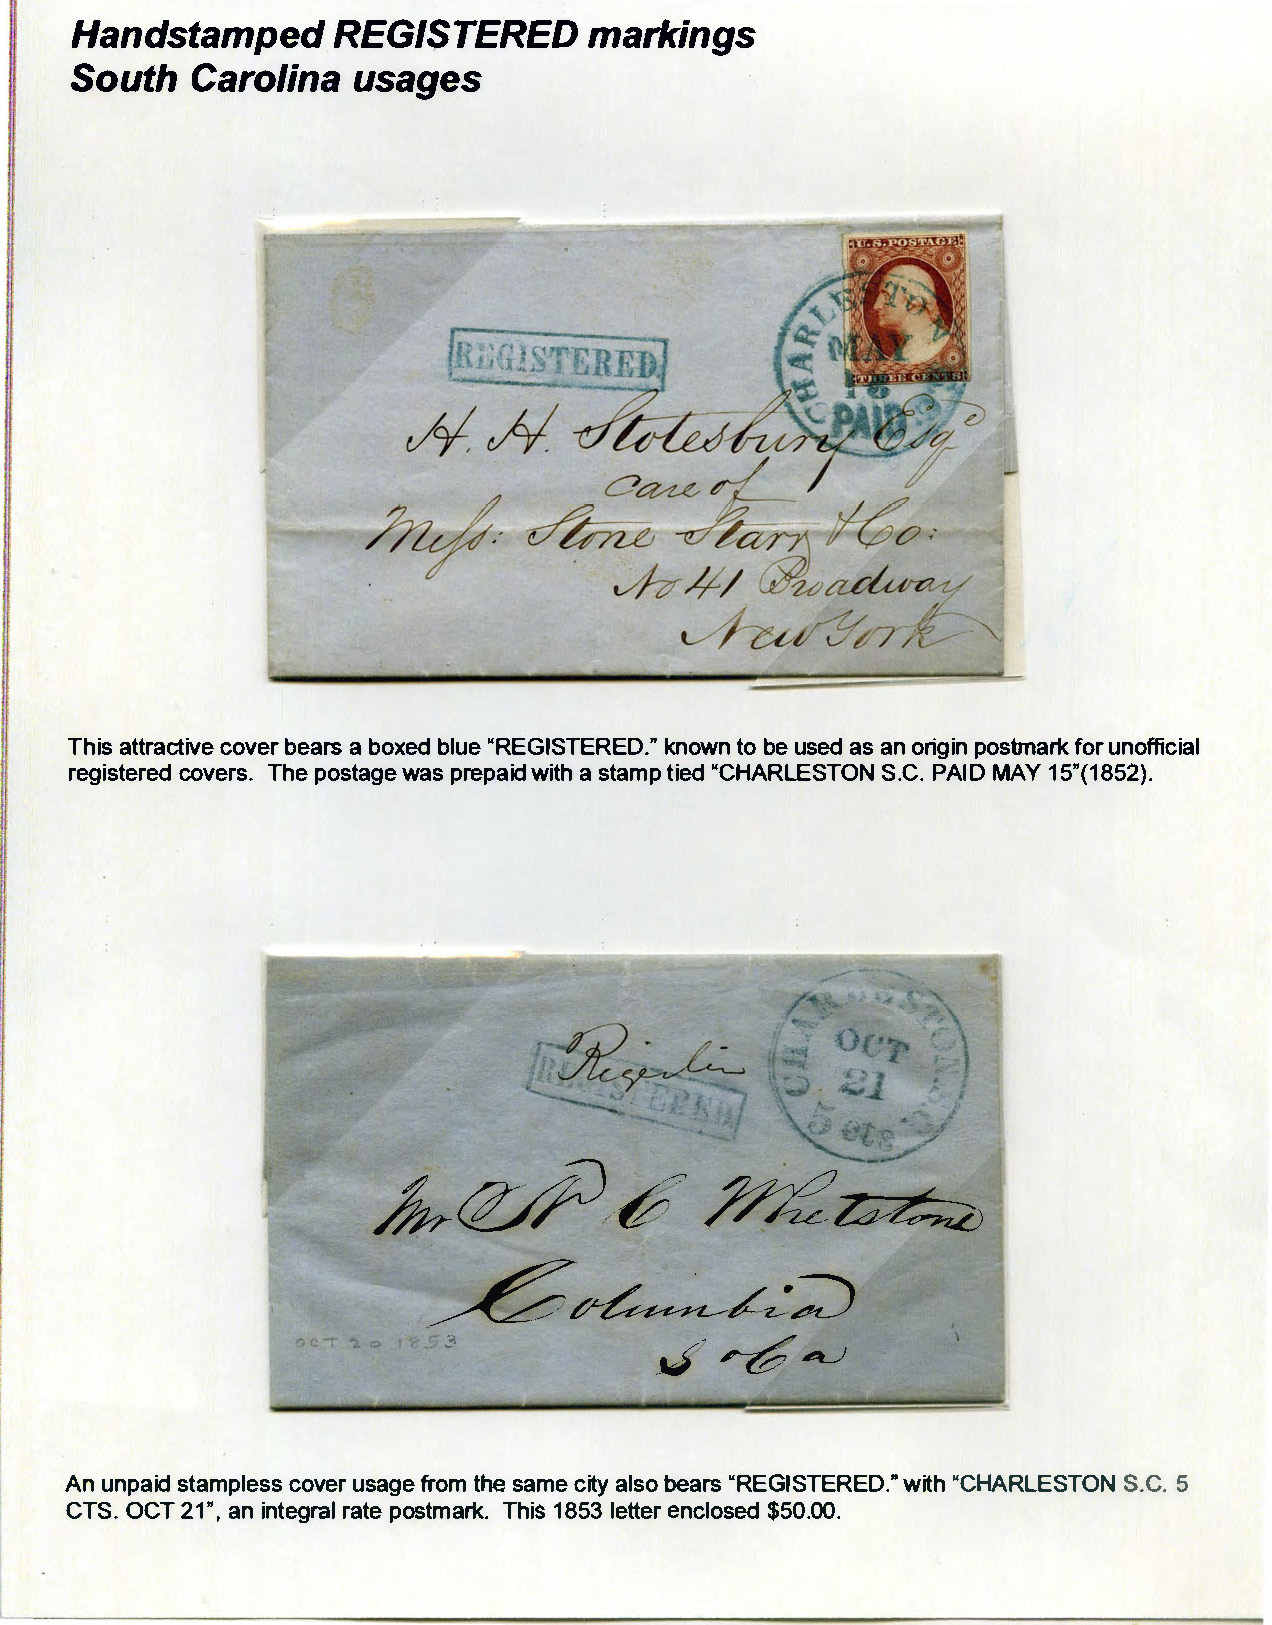 Handstamped REGISTERED markings
South Carolina usages
U.S.POSTAGE
CHARLESTON
MAY
15
PAID
THREE CENTS
REGISTERED.
H. H. Stotesbury Esqe
care of
Mess: Stone Starr & Co:
No 41 Broadway
New York
This attractive cover bears a boxed blue "REGISTERED." known to be used as an origin postmark for unofficial
registered covers. The postage was prepaid with a stamp tied "CHARLESTON S.C. PAID MAY 15"(1852).
CHARLESTON S.C.
OCT
21
5 cts
REGISTERED.
Mr N C Whetstone
Columbia
So Ca
OCT 20 1853
An unpaid stampless cover usage from the same city also bears "REGISTERED." with "CHARLESTON S.C. 5
CTS. OCT 21", an integral rate postmark. This 1853 letter enclosed $50.00.